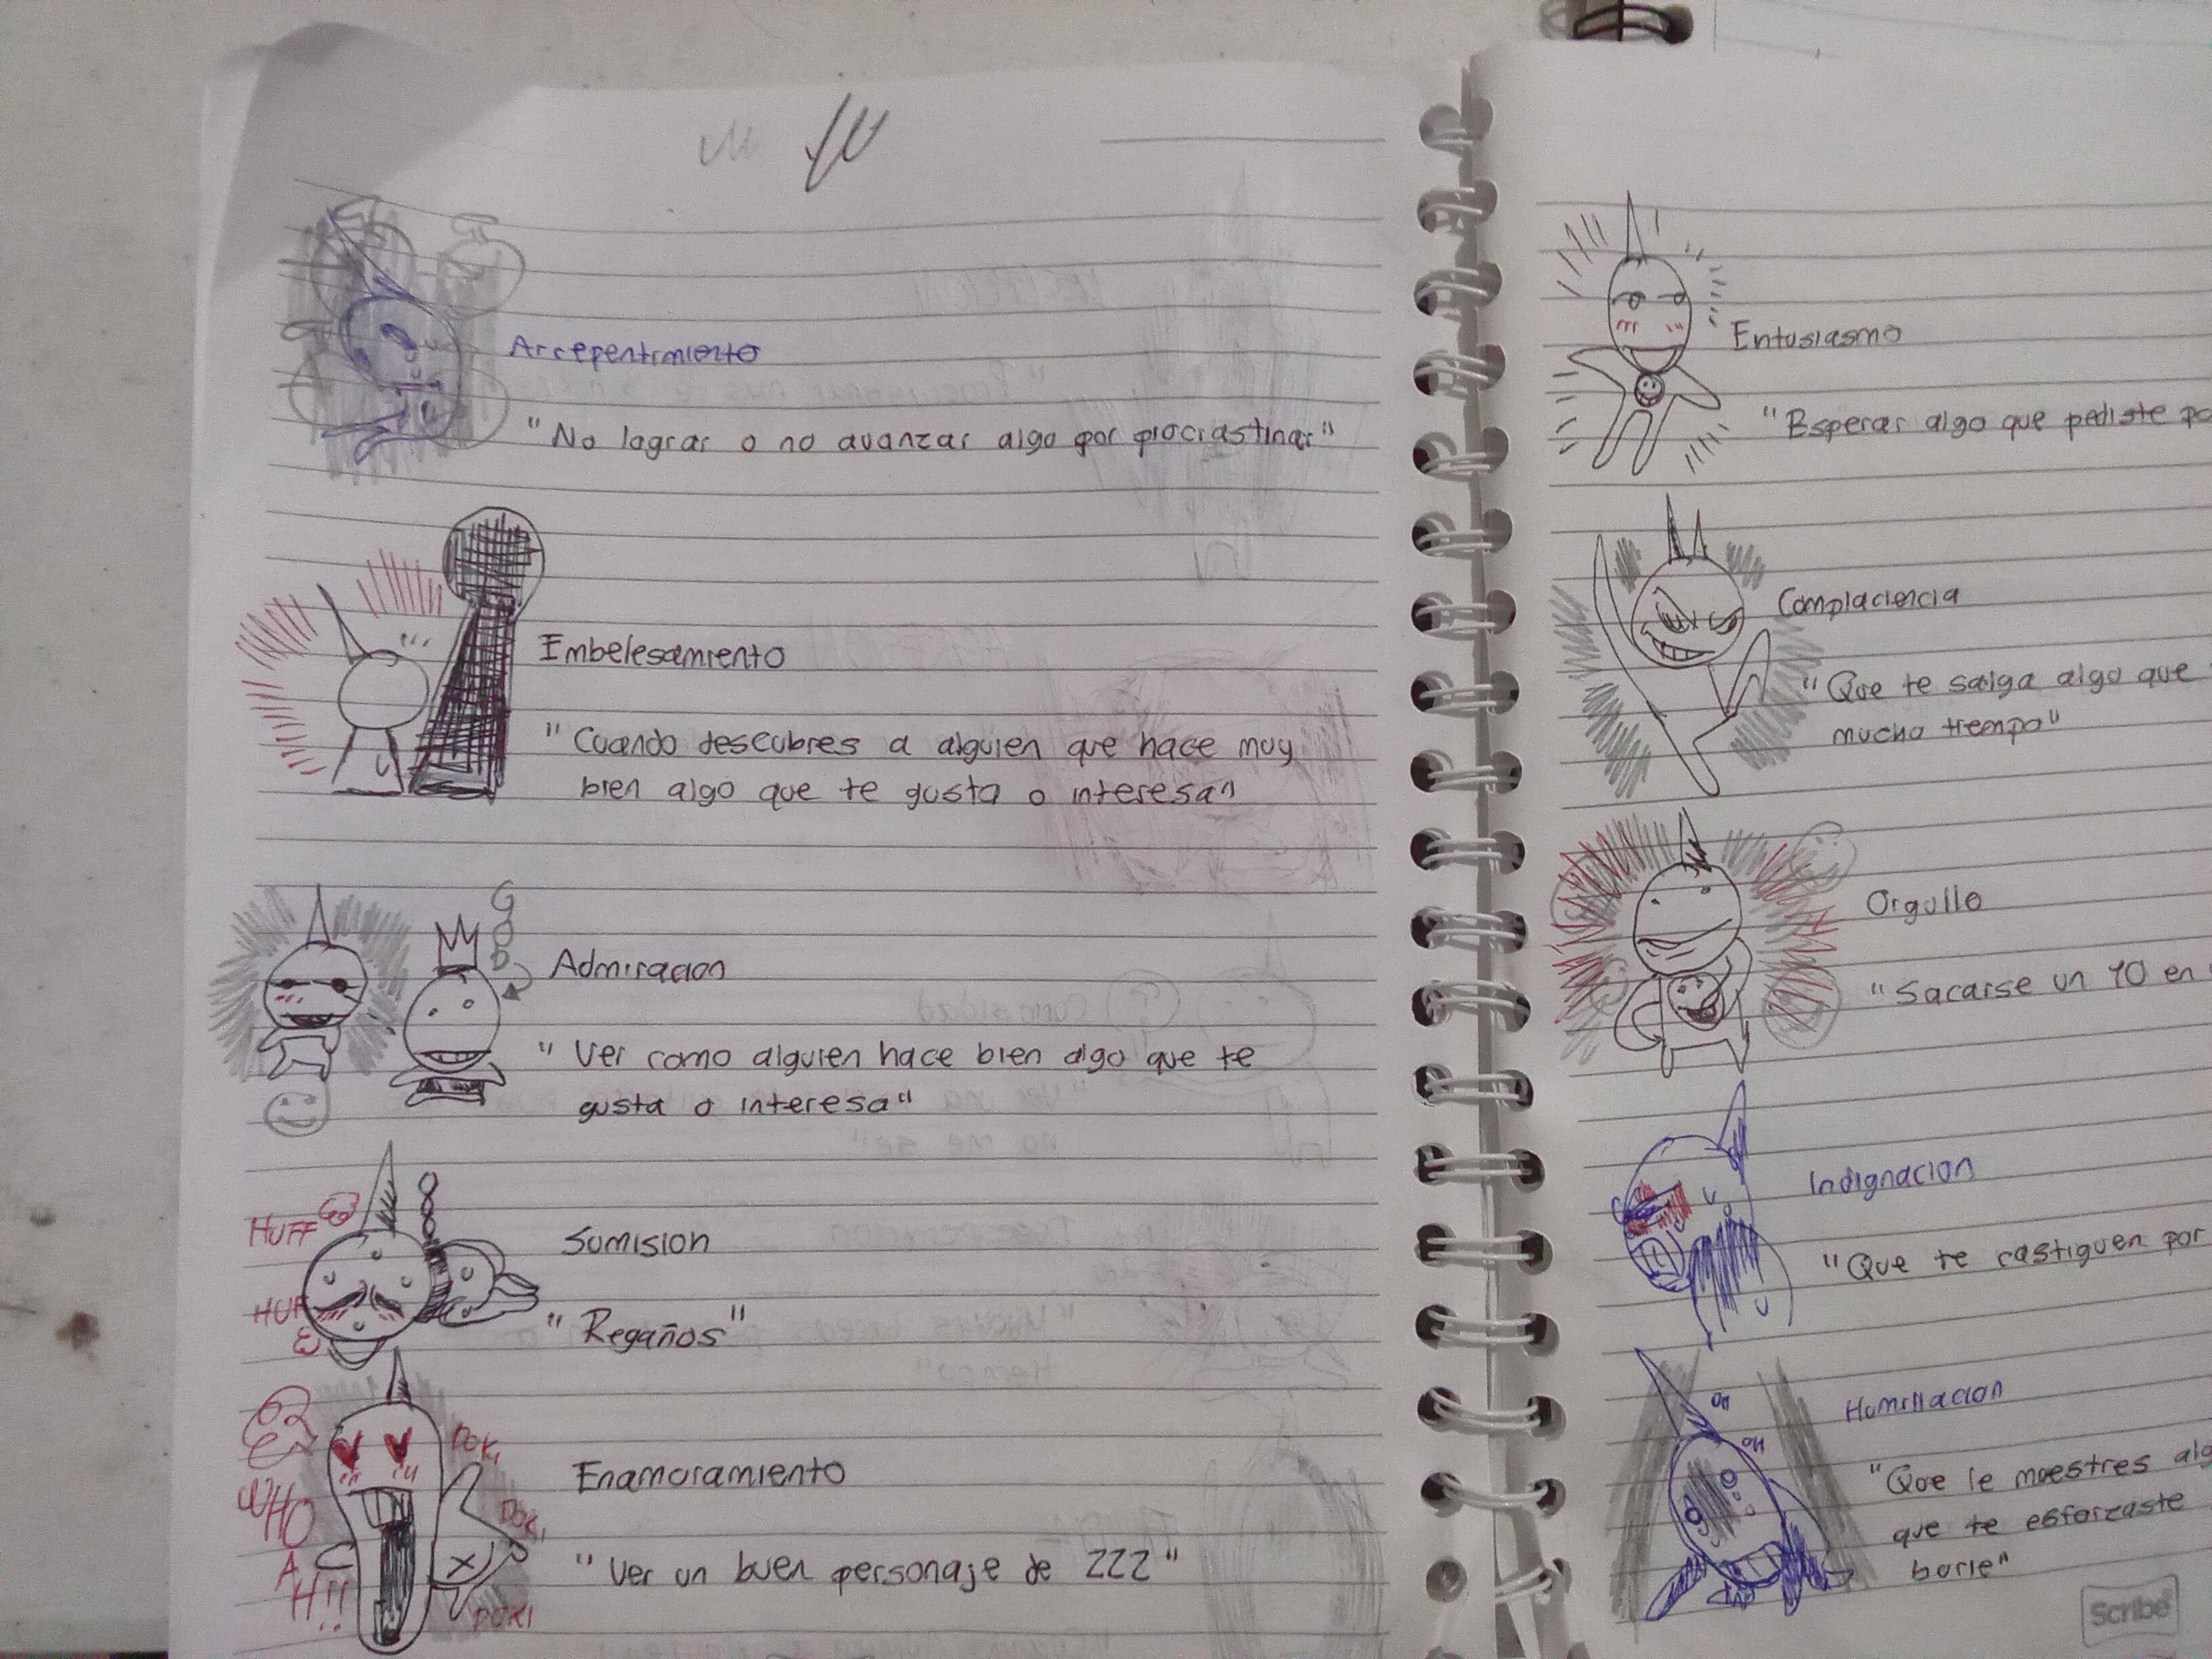 Arrepentimiento
"No lograr o no avanzar algo por procrastinar"
Embelesamiento
"Cuando descubres a alguien que hace muy
bien algo que te gusta o interesa"
GOD
Admiracion
"Ver como alguien hace bien algo que te
gusta o interesa"
HUFF
HUF
Sumision
"Regaños"
DOKI
WHO
A
H!!
DOKI
DOKI
Enamoramiento
"Ver un buen personaje de ZZZ"
Entusiasmo
"Esperar algo que pediste po
Complaciencia
"Que te salga algo que
mucho tiempo"
Orgullo
"Sacarse un 10 en
Indignacion
"Que te castiguen por
Humillacion
"Que le muestres alg
que te esforzaste
burle"
Scribe